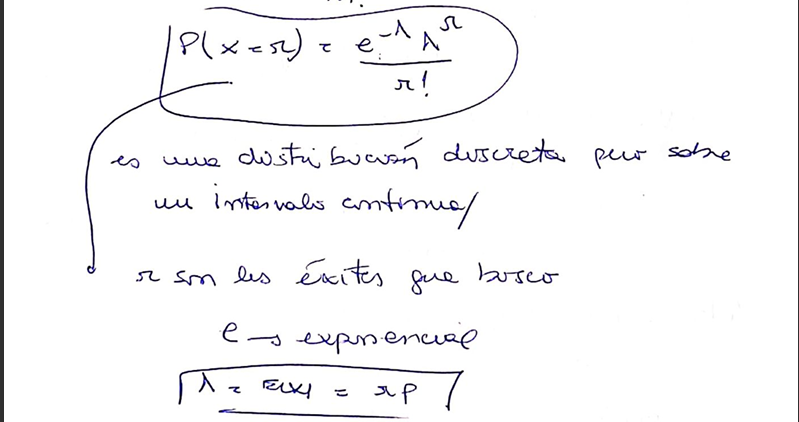 P(x=r) = e^-λ λ^r / r!
es una distribución discreta pero sobre
un intervalo continuo/
r son los éxitos que busco
e → exponencial
λ = E(x) = rp